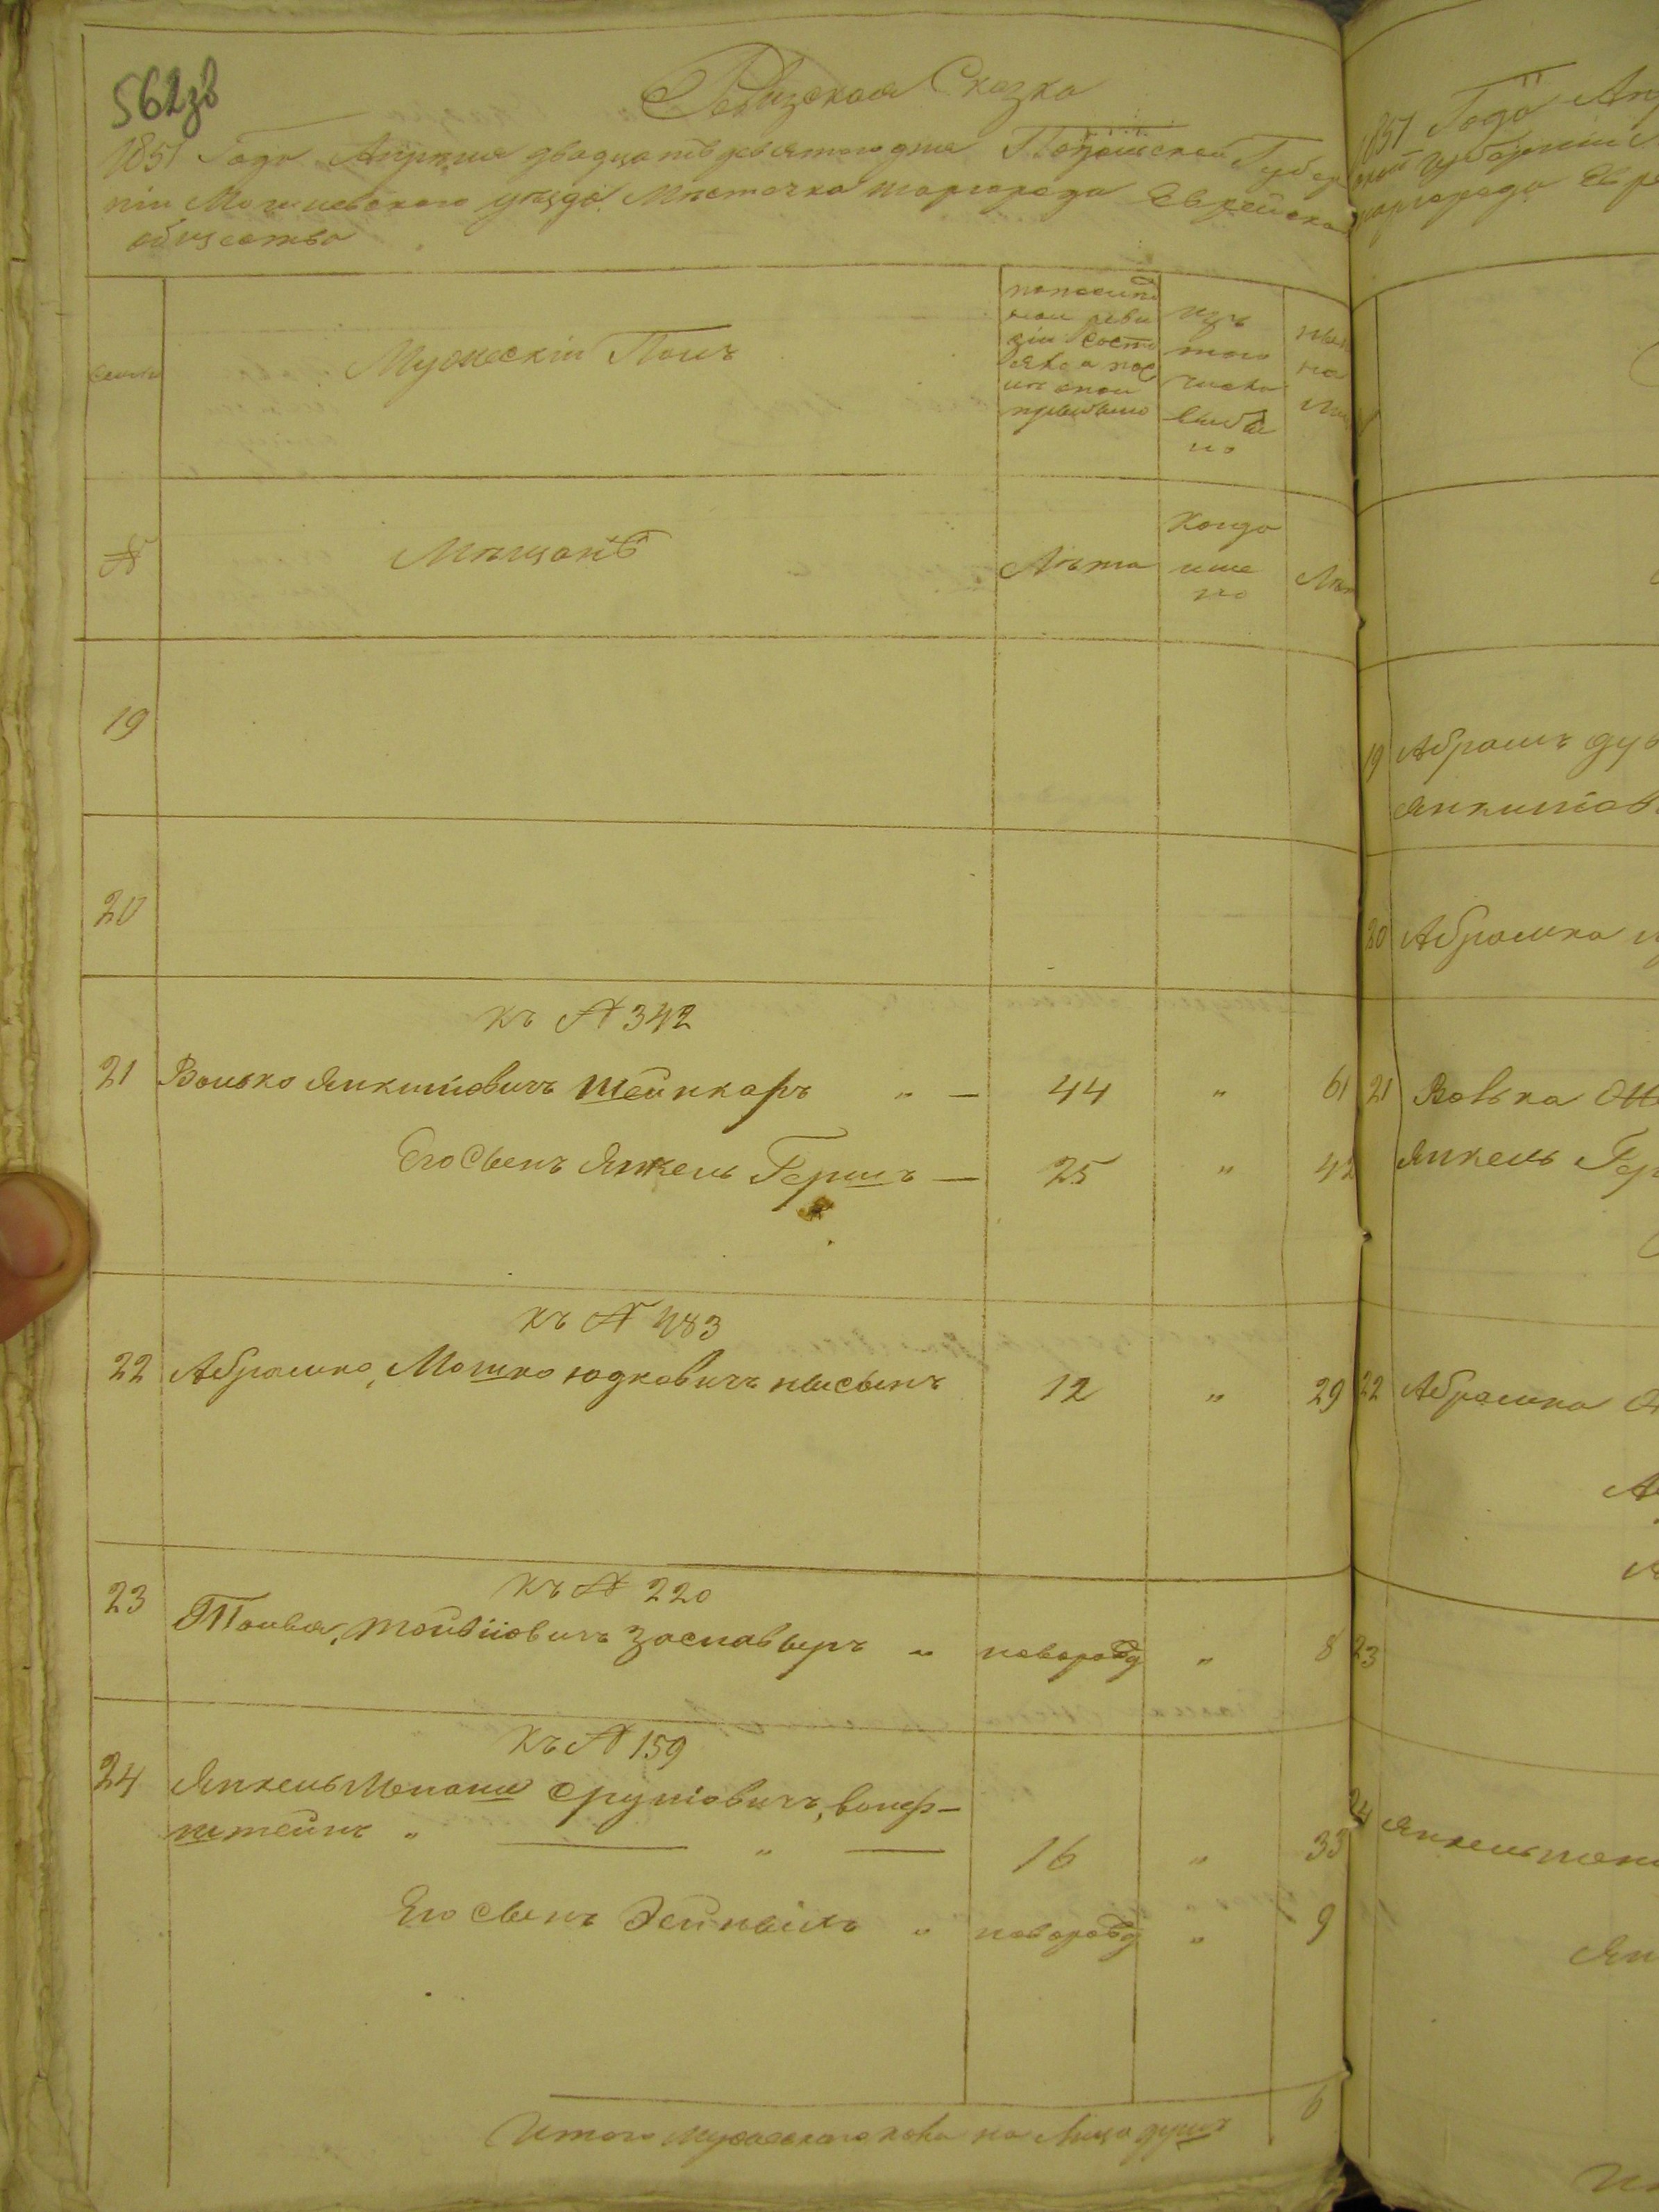 562зв
Ревизская Сказка
1851 Года Апреля двадцать девятого дня Подольской Губер
ніи Могилевского уезда Местечка шаргорода Еврейска
общества
семьи
Мужескій Полъ
по послед
ней реви
зіи состо
яло и пос
ле оной
прибыло
изъ
того
числа
выбы
ло
ныне
на
лиц
№
Мещанъ
Лета
Когда
име
но
Лет
19
20
къ № 342
21 Волько Янкилiовичъ Шейнкаръ „ — 44 „ 61
Его Сынъ Янкель Гершъ — 25 „ 42
къ № 483
22 Абрамко, Мошко юдковичъ 12 „ 29
къ № 220
23 Тойвя, Тойвiiовичъ Заславверъ „ новорожд „ 8
къ № 159
24 Янкель Менаше Сруліовичъ, вонер-
штейнъ „ — „ — 16 „ 33
Его Сынъ Зейнвілъ „ новорожд „ 9
Итого мужеского пола на лицо душъ 6
1851 Года Ап
губерніи
шаргорода Евре
19 Абрамъ
Янкиліов
20 Абрамка
21 Волька
Янкель Гер
22 Абрамка
23
24 Янкель мена
Ян